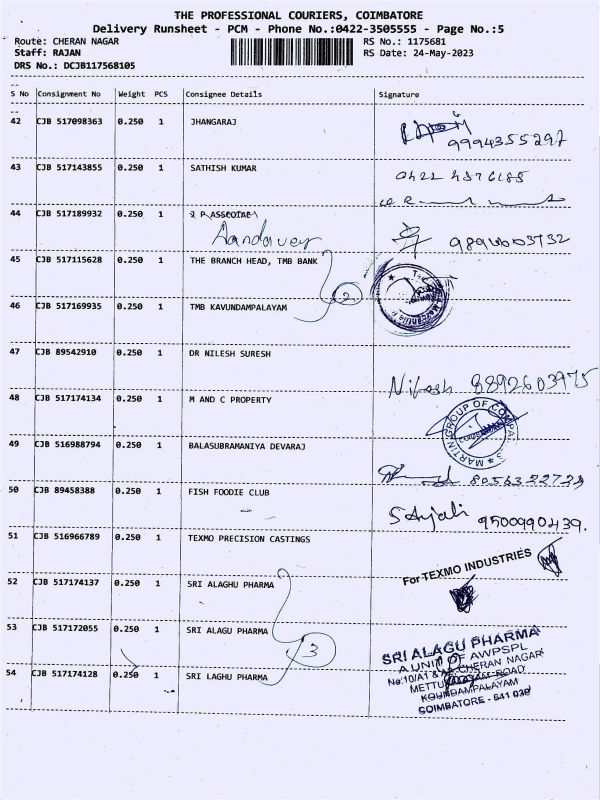 THE PROFESSIONAL COURIERS, COIMBATORE
Delivery Runsheet - PCM - Phone No.:0422-3505555 - Page No.:5
Route: CHERAN NAGAR RS No.: 1175681
Staff: RAJAN RS Date: 24-May-2023
DRS No.: DCJB117568105
S No Consignment No Weight PCS Consignee Details Signature
42 CJB 517098363 0.250 1 JHANGARAJ
9994355297
43 CJB 517143855 0.250 1 SATHISH KUMAR
44 CJB 517189932 0.250 1
Aandaver
45 CJB 517115628 0.250 1 THE BRANCH HEAD, TMB BANK
2
46 CJB 517169935 0.250 1 TMB KAVUNDAMPALAYAM
47 CJB 89542910 0.250 1 DR NILESH SURESH
Nilesh 8892603975
48 CJB 517174134 0.250 1 M AND C PROPERTY
MARTIN GROUP OF COMPANIES
49 CJB 516988794 0.250 1 BALASUBRAMANIYA DEVARAJ
50 CJB 89458388 0.250 1 FISH FOODIE CLUB
9500990439.
51 CJB 516966789 0.250 1 TEXMO PRECISION CASTINGS
For TEXMO INDUSTRIES
52 CJB 517174137 0.250 1 SRI ALAGHU PHARMA
53 CJB 517172055 0.250 1 SRI ALAGU PHARMA
3
54 CJB 517174128 0.250 1 SRI LAGHU PHARMA
SRI ALAGU PHARMA
A UNIT OF AWPSPL
CHERAN NAGAR
ROAD
KOUNDAMPALAYAM
COIMBATORE - 641 030